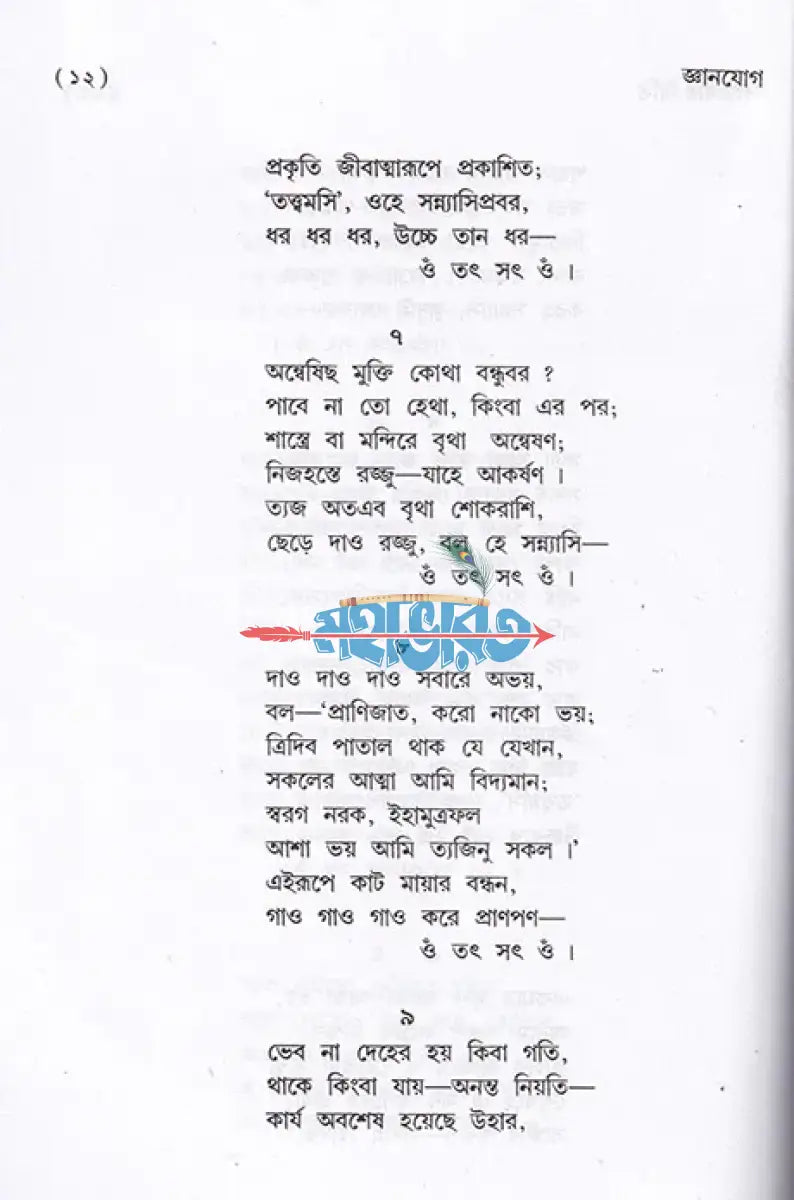 (১২)
জ্ঞানযোগ
প্রকৃতি জীবাত্মারূপে প্রকাশিত;
‘তত্ত্বমসি’, ওহে সন্ন্যাসিপ্রবর,
ধর ধর ধর, উচ্চে তান ধর—
ওঁ তৎ সৎ ওঁ ।
৭
অন্বেষিছ মুক্তি কোথা বন্ধুবর ?
পাবে না তো হেথা, কিংবা এর পর;
শাস্ত্রে বা মন্দিরে বৃথা অন্বেষণ;
নিজহস্তে রজ্জু—যাহে আকর্ষণ ।
ত্যজ অতএব বৃথা শোকরাশি,
ছেড়ে দাও রজ্জু, বল হে সন্ন্যাসি—
ওঁ তৎ সৎ ওঁ ।
মহাভারত
দাও দাও দাও সবারে অভয়,
বল—‘প্রাণিজাত, করো নাকো ভয়;
ত্রিদিব পাতাল থাক যে যেখান,
সকলের আত্মা আমি বিদ্যমান;
স্বরগ নরক, ইহামুত্রফল
আশা ভয় আমি ত্যজিনু সকল ।’
এইরূপে কাট মায়ার বন্ধন,
গাও গাও গাও করে প্রাণপণ—
ওঁ তৎ সৎ ওঁ ।
৯
ভেব না দেহের হয় কিবা গতি,
থাকে কিংবা যায়—অনন্ত নিয়তি—
কার্য অবশেষ হয়েছে উহার,